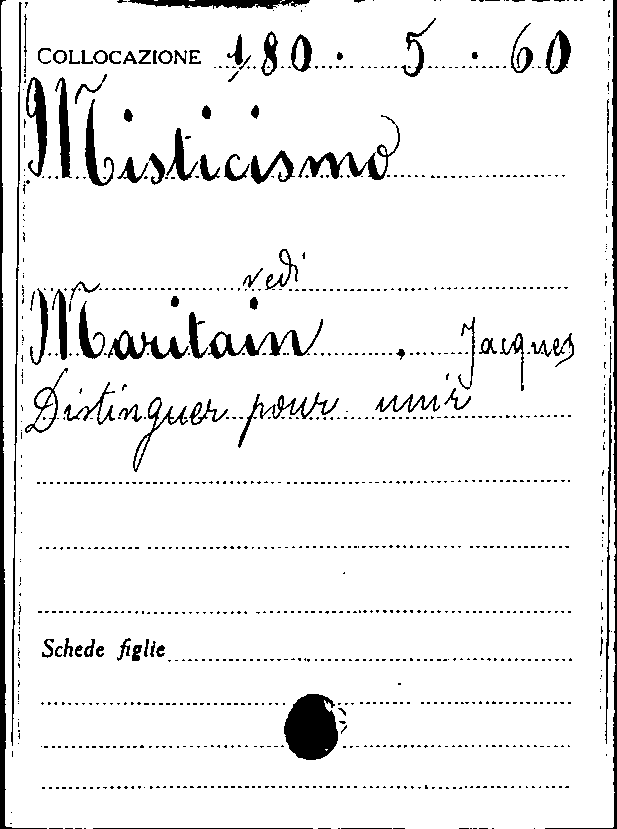 COLLOCAZIONE 180 . 5 . 60
Misticismo
vedi
Maritain , Jacques
Distinguer pour unir
Schede figlie